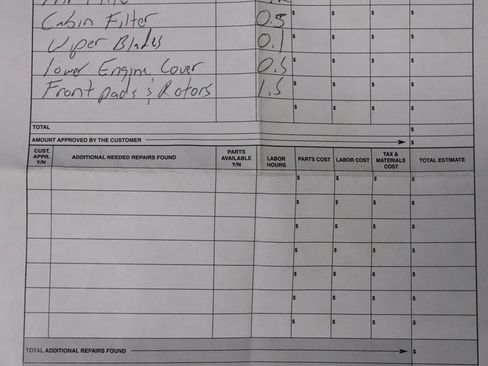 Cabin Filter 0.5 $ $ $ $
Wiper Blades 0.1 $ $ $ $
Lower Engine Cover 0.5 $ $ $ $
Front pads & Rotors 1.5 $ $ $ $
$ $ $ $
TOTAL $
AMOUNT APPROVED BY THE CUSTOMER $
CUST. APPR. Y/N ADDITIONAL NEEDED REPAIRS FOUND PARTS AVAILABLE Y/N LABOR HOURS PARTS COST LABOR COST TAX & MATERIALS COST TOTAL ESTIMATE
$ $ $ $
$ $ $ $
$ $ $ $
$ $ $ $
$ $ $ $
$ $ $ $
$ $ $ $
TOTAL ADDITIONAL REPAIRS FOUND $